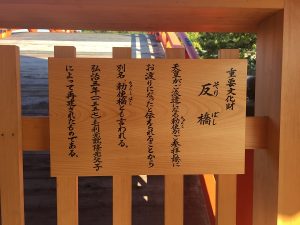 重要文化財
反橋
そりばし
天皇がご派遣になる勅使がご参拝時に
お渡りになったと伝えられることから
別名 勅使橋とも言われる。
弘治三年(一五五七)毛利元就隆元父子
によって再建されたものである。